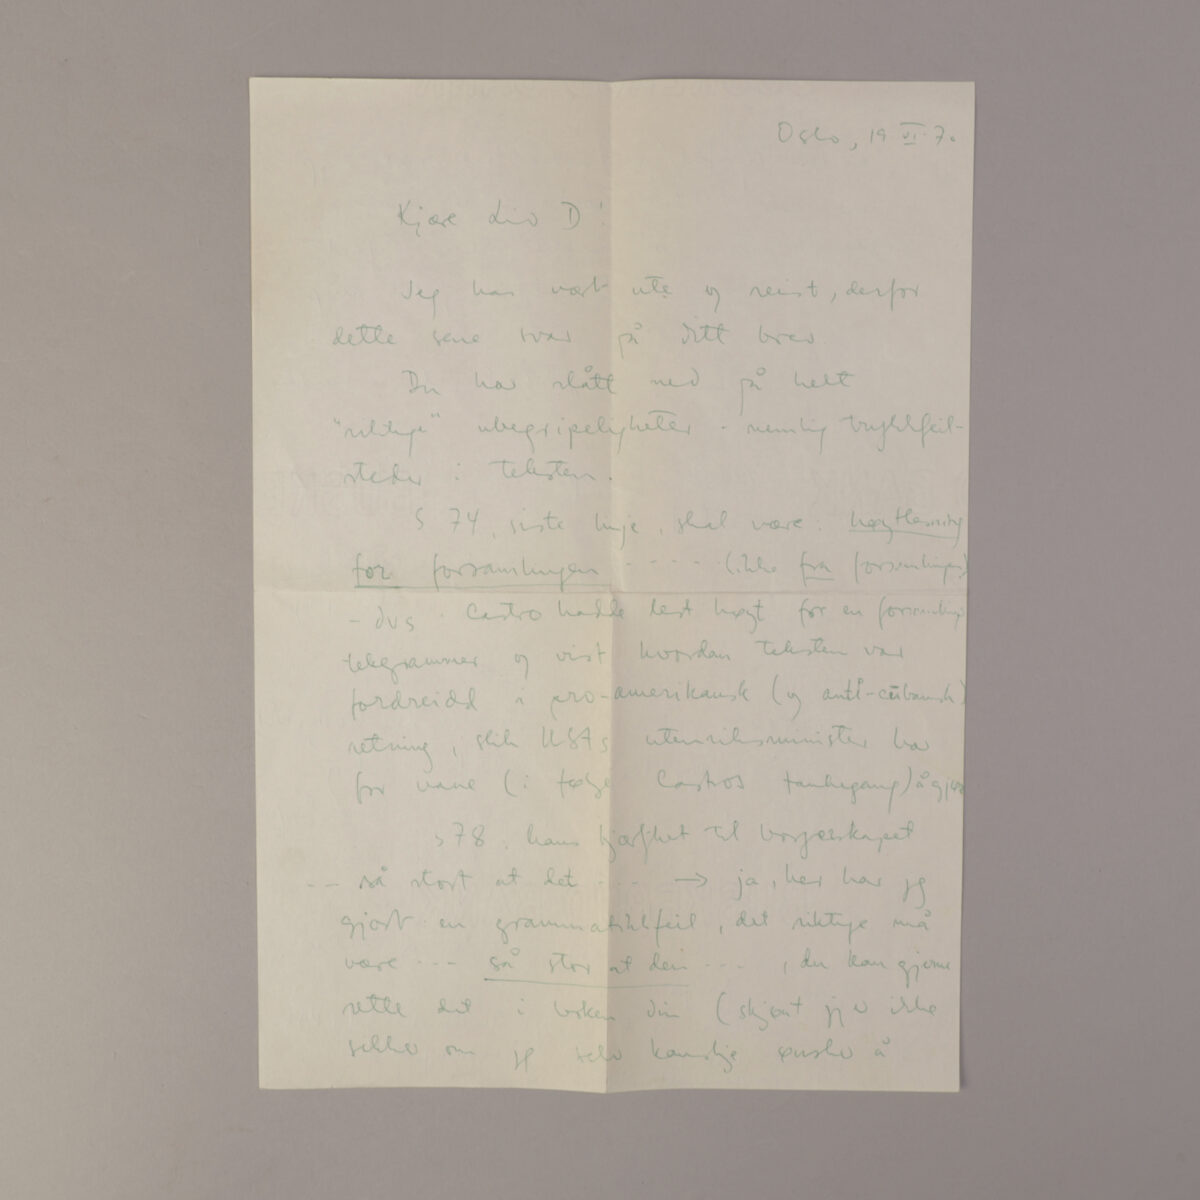 Oslo, 19 VI 70
Kjære Liv D!
Jeg har vært ute og reist, derfor
dette sene svar på ditt brev.
Du har slått ned på helt
"riktige" ubegripeligheter - nemlig trykkfeil-
steder i teksten.
S 74, siste linje, skal være: høytlesning
for forsamlingen - - - - (ikke fra forsamlingen)
- dvs. Castro hadde lest høyt for en forsamling
telegrammer og vist hvordan teksten var
fordreidd i pro-amerikansk (og anti-cubansk)
retning, slik USAs utenriksminister har
for vane (i følge Castros tankegang) å gjøre
s 78. hans kjærlihet til borgerskapet
-- så stort at det - - - → ja, her har jeg
gjort en grammatikkfeil, det riktige må
være --- så stor at den ---, du kan gjerne
rette det i boken din (skjønt jeg er ikke
sikker om jeg selv kanskje ønsker å